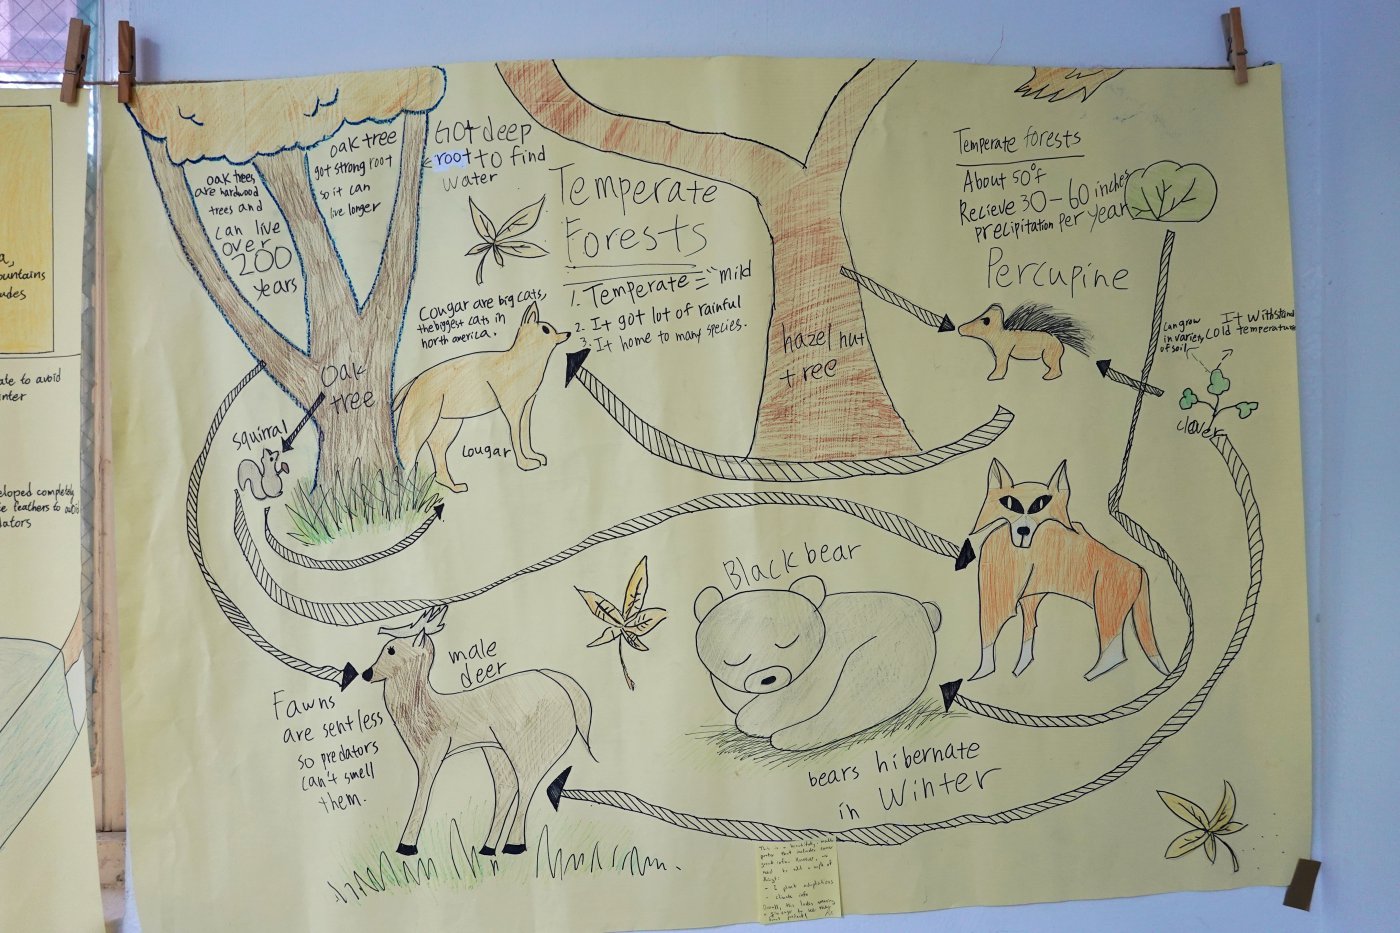 oak trees
are hardwood
trees and
can live
over
200
years
oak tree
got strong root
so it can
live longer
Got deep
root to find
water
Temperate
Forests
1. Temperate = "mild
2. It got lot of rainful
3. It home to many species.
Cougar are big cats,
the biggest cats in
north america.
Temperate forests
About 50°f
Recieve 30-60 inches
precipitation per year
Percupine
hazel nut
tree
can grow
in variety
of soil
It withstand
cold temperature
clover
oak
tree
squirral
cougar
Black bear
male
deer
Fawns
are sent less
so predators
can't smell
them.
bears hibernate
in Winter
This is a beautifully made
- 2 plant adaptations
- climate info
a,
ountains
udes
ate to avoid
nter
eloped completely
e feathers to
dators